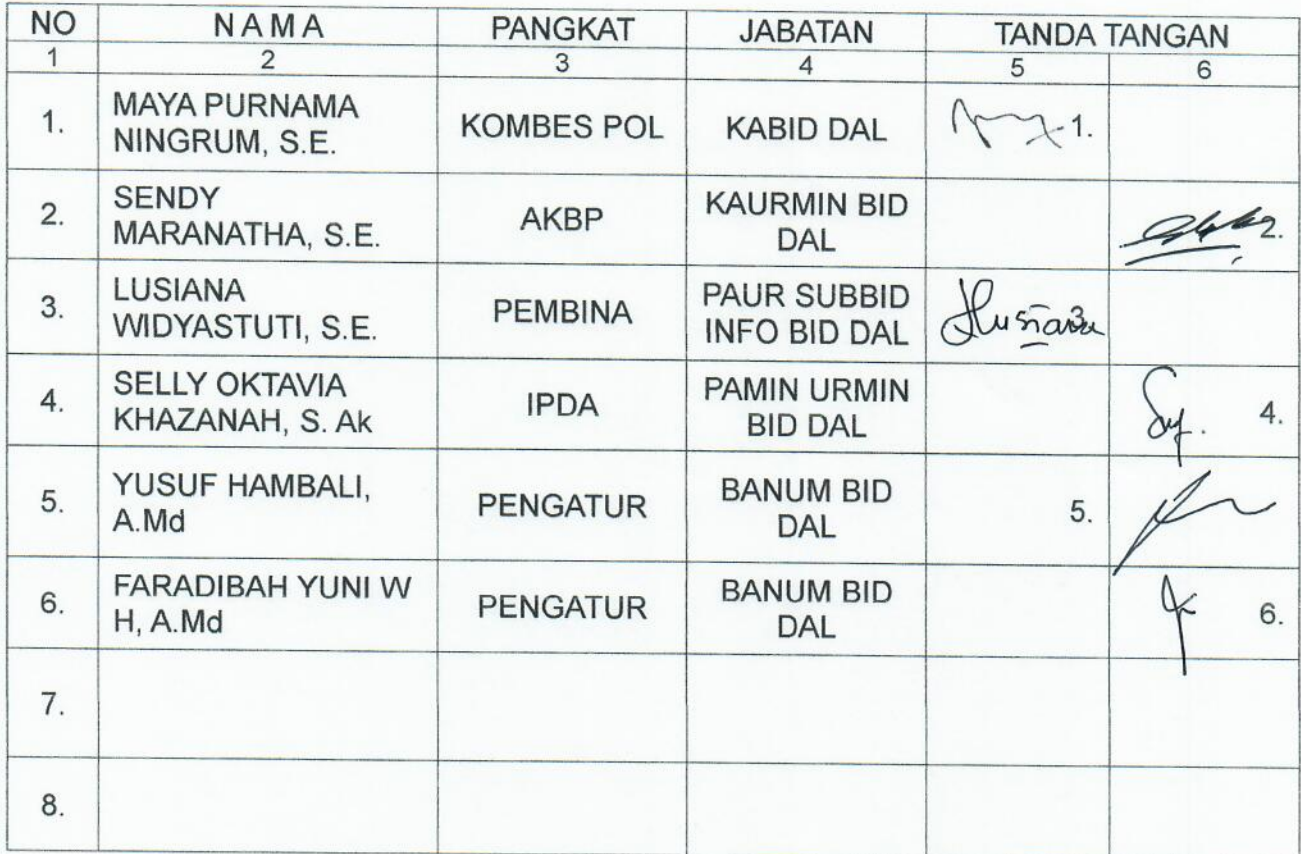 NO NAMA PANGKAT JABATAN TANDA TANGAN
1 2 3 4 5 6
1. MAYA PURNAMA NINGRUM, S.E. KOMBES POL KABID DAL 1.
2. SENDY MARANATHA, S.E. AKBP KAURMIN BID DAL 2.
3. LUSIANA WIDYASTUTI, S.E. PEMBINA PAUR SUBBID INFO BID DAL 3.
4. SELLY OKTAVIA KHAZANAH, S. Ak IPDA PAMIN URMIN BID DAL 4.
5. YUSUF HAMBALI, A.Md PENGATUR BANUM BID DAL 5.
6. FARADIBAH YUNI W H, A.Md PENGATUR BANUM BID DAL 6.
7.
8.